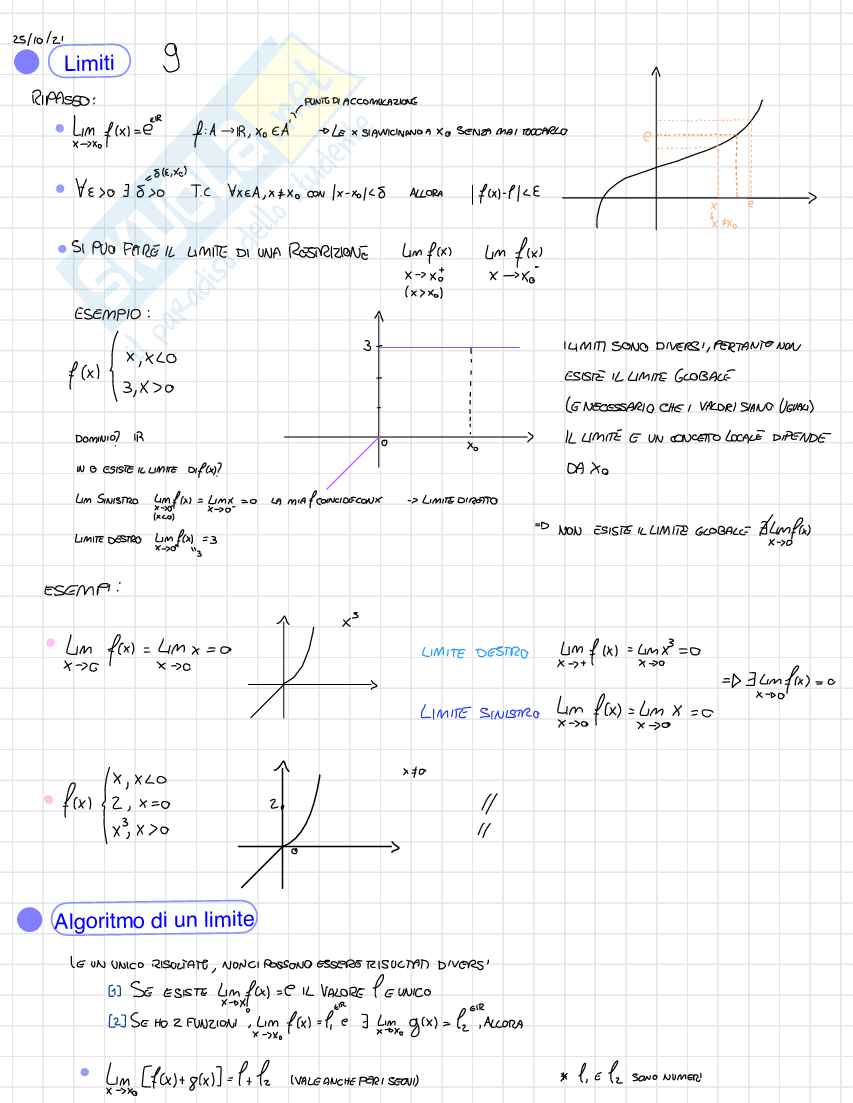 25/10/21
Limiti 9
RIPASSO:
PUNTO DI ACCUMULAZIONE
Lim f(x)=e ∈ℝ f: A → ℝ, x₀ ∈ A' → LE X SI AVVICINANO A X₀ SENZA MAI TOCCARLO
x→x₀
δ(ε,x₀)
∀ε>0 ∃ δ>0 T.C ∀x∈A, x≠x₀ CON |x-x₀|<δ ALLORA |f(x)-l|<ε
e
x x₀ e
x≠x₀
SI PUÒ FARE IL LIMITE DI UNA RESTRIZIONE Lim f(x) Lim f(x)
x→x₀⁺ x→x₀⁻
(x>x₀)
ESEMPIO:
f(x) { x, x<0
3, x>0
3
0 x₀
I LIMITI SONO DIVERSI, PERTANTO NON
ESISTE IL LIMITE GLOBALE
(È NECESSARIO CHE I VALORI SIANO UGUALI)
IL LIMITE È UN CONCETTO LOCALE DIPENDE
DA X₀
DOMINIO? ℝ
IN 0 ESISTE IL LIMITE DI f(x)?
LIM SINISTRO Lim f(x) = Lim x = 0 LA MIA f COINCIDE CON X -> LIMITE DIRETTO
x→0⁻ x→0⁻
(x<0)
LIMITE DESTRO Lim f(x) = 3
x→0⁺ "3
=> NON ESISTE IL LIMITE GLOBALE ∄ Lim f(x)
x→0
ESEMPI:
Lim f(x) = Lim x = 0
x→0 x→0
x³
LIMITE DESTRO Lim f(x) = Lim x³ = 0
x→+ x→0
=> ∃ Lim f(x) = 0
x→0
LIMITE SINISTRO Lim f(x) = Lim x = 0
x→0 x→0
f(x) { x, x<0
2, x=0
x³, x>0
2
0
x≠0
//
//
Algoritmo di un limite
(È UN UNICO RISULTATO, NON CI POSSONO ESSERE RISULTATI DIVERSI
[1] SE ESISTE Lim f(x) = e IL VALORE l È UNICO
x→x₀
[2] SE HO 2 FUNZIONI, Lim f(x) = l₁ ∈ℝ e ∃ Lim g(x) = l₂ ∈ℝ, ALLORA
x→x₀ x→x₀
Lim [f(x)+g(x)] = l₁+l₂ (VALE ANCHE PER I SEGNI) * l₁ E l₂ SONO NUMERI
x→x₀
SKUOLA.net
il paradiso dello studente